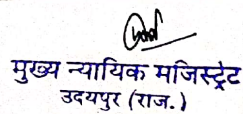 मुख्य न्यायिक मजिस्ट्रेट
उदयपुर (राज.)